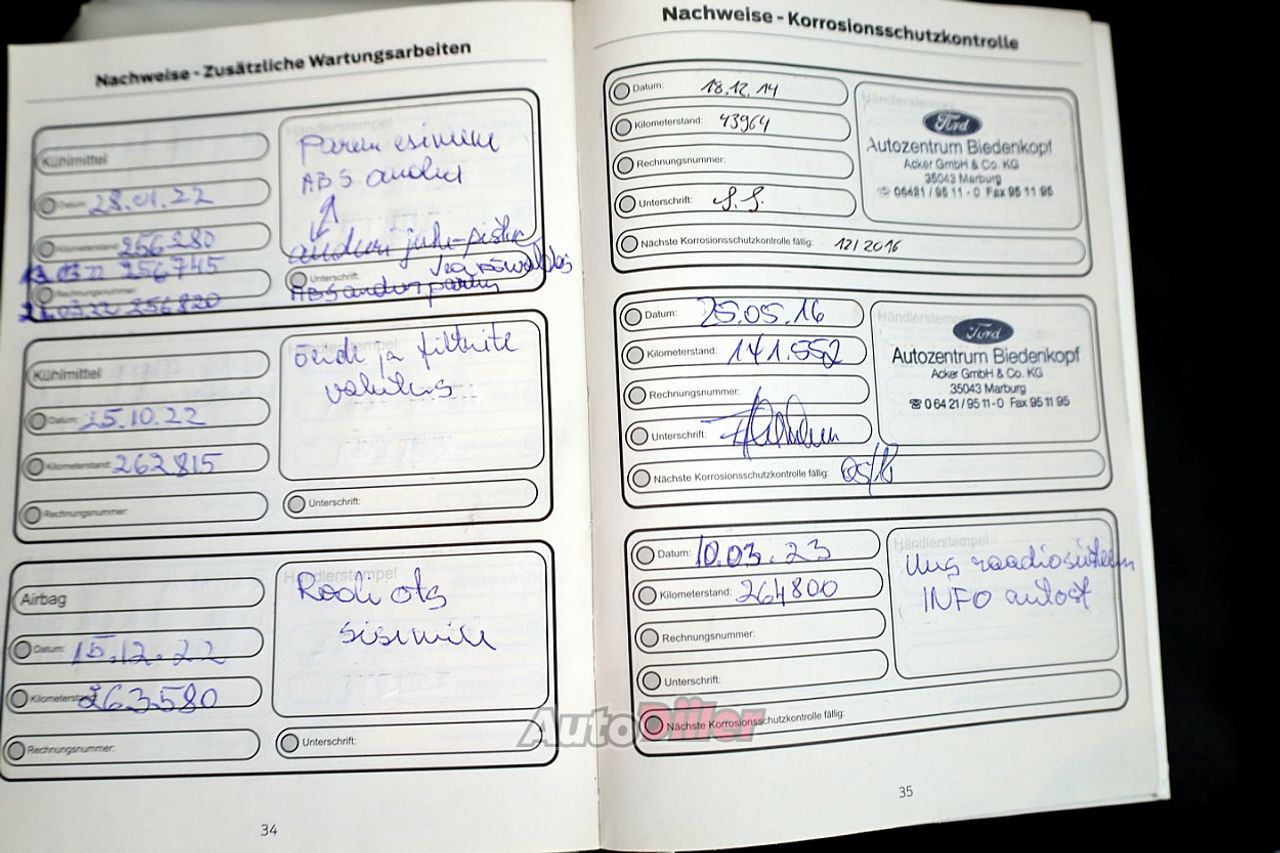 Nachweise - Zusätzliche Wartungsarbeiten
Kühlmittel
Datum: 28.01.22
Kilometerstand: 256280
13.03.22 256745
Rechnungsnummer:
21.03.22 256820
Händlerstempel
Parem esimene
ABS andur
Unterschrift:
ABS andur parem
Kühlmittel
Datum: 15.10.22
Kilometerstand: 262815
Rechnungsnummer:
Händlerstempel
õlide ja filtrite
vahetus
Unterschrift:
Airbag
Datum: 15.12.22
Kilometerstand: 263580
Rechnungsnummer:
Händlerstempel
Rooli ots
sisemine
Unterschrift:
34
Nachweise - Korrosionsschutzkontrolle
Datum: 18.12.14
Kilometerstand: 43964
Rechnungsnummer:
Unterschrift:
Nächste Korrosionsschutzkontrolle fällig: 12/2016
Händlerstempel
Ford
Autozentrum Biedenkopf
Acker GmbH & Co. KG
35043 Marburg
☎ 06421 / 95 11 - 0 Fax 95 11 95
Datum: 25.05.16
Kilometerstand: 141.552
Rechnungsnummer:
Unterschrift:
Nächste Korrosionsschutzkontrolle fällig: 05/18
Händlerstempel
Ford
Autozentrum Biedenkopf
Acker GmbH & Co. KG
35043 Marburg
☎ 0 64 21 / 95 11-0 Fax 95 11 95
Datum: 10.03.23
Kilometerstand: 264800
Rechnungsnummer:
Unterschrift:
Nächste Korrosionsschutzkontrolle fällig:
Händlerstempel
Uus raadiosüsteem
INFO autost
35
AutoDiiler